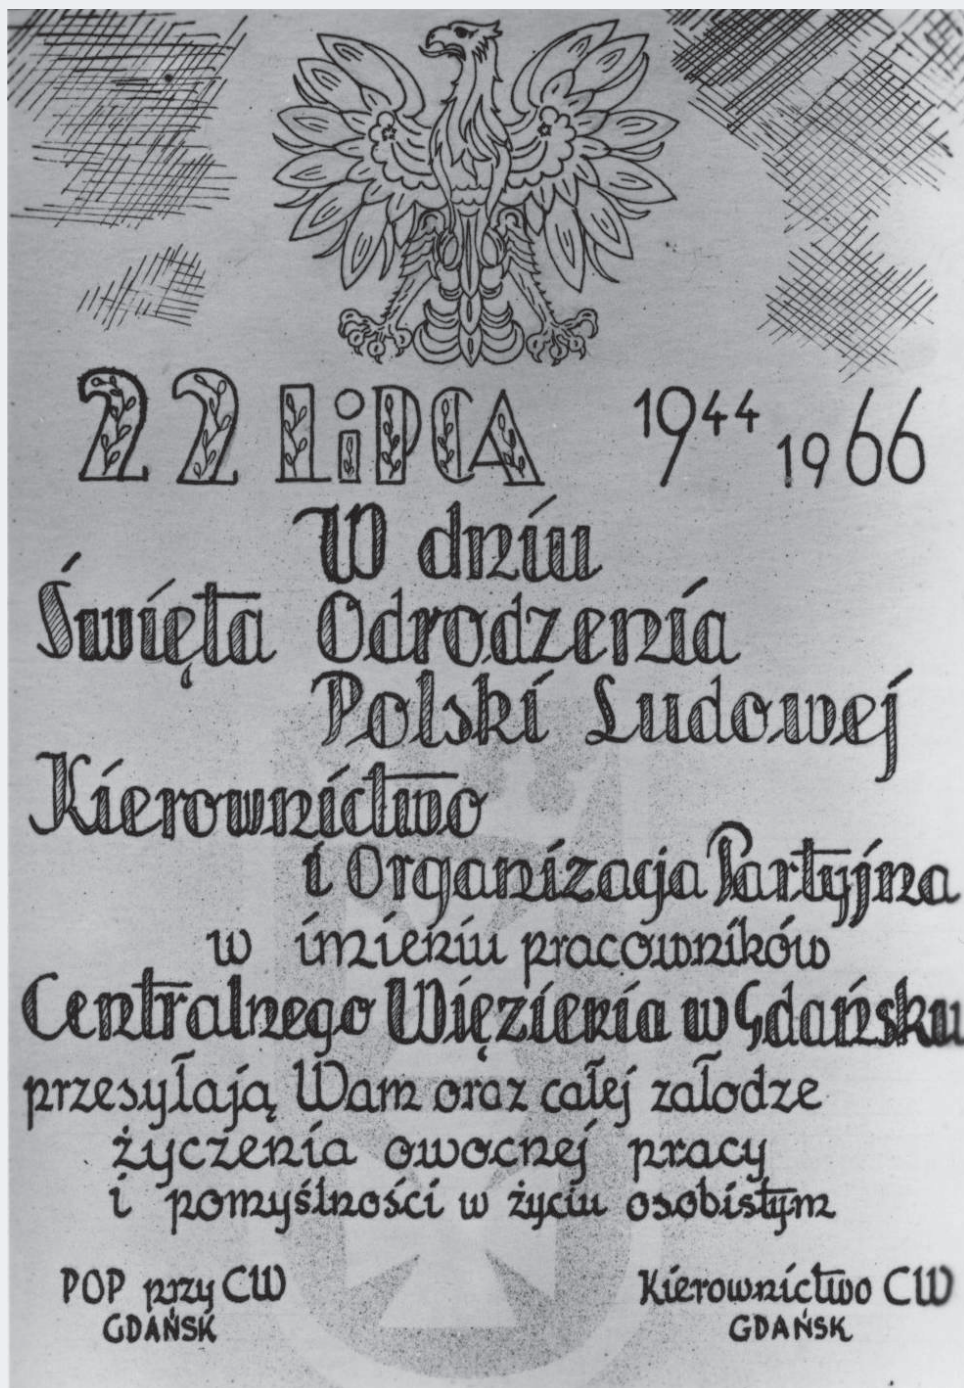 22 LiPCA 1944 1966
W dniu
Święta Odrodzenia
Polski Ludowej
Kierownictwo
i Organizacja Partyjna
w imieniu pracowników
Centralnego Więzienia w Gdańsku
przesyłają Wam oraz całej załodze
życzenia owocnej pracy
i pomyślności w życiu osobistym
POP przy CW Kierownictwo CW
GDAŃSK GDAŃSK